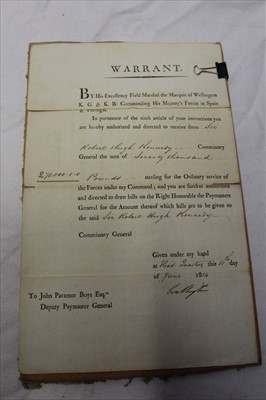 WARRANT.
BY His Excellency Field Marshal the Marquis of Wellington
K. G. & K. B. Commanding His Majesty's Forces in Spain
& Portugal.
In pursuance of the sixth article of your instructions you
are hereby authorized and directed to receive from Sir
Robert Hugh Kennedy Commissary
General the sum of Seventy thousand
£70,000.0.0 Pounds sterling for the Ordinary service of
the Forces under my Command; and you are further authorized
and directed to draw bills on the Right Honorable the Paymasters
General for the Amount thereof which bills are to be given to
the said Sir Robert Hugh Kennedy
Commissary General
Given under my hand
at Head Quarters this 10th day
of June 1814
Wellington
To John Paramor Boys Esqre.
Deputy Paymaster General